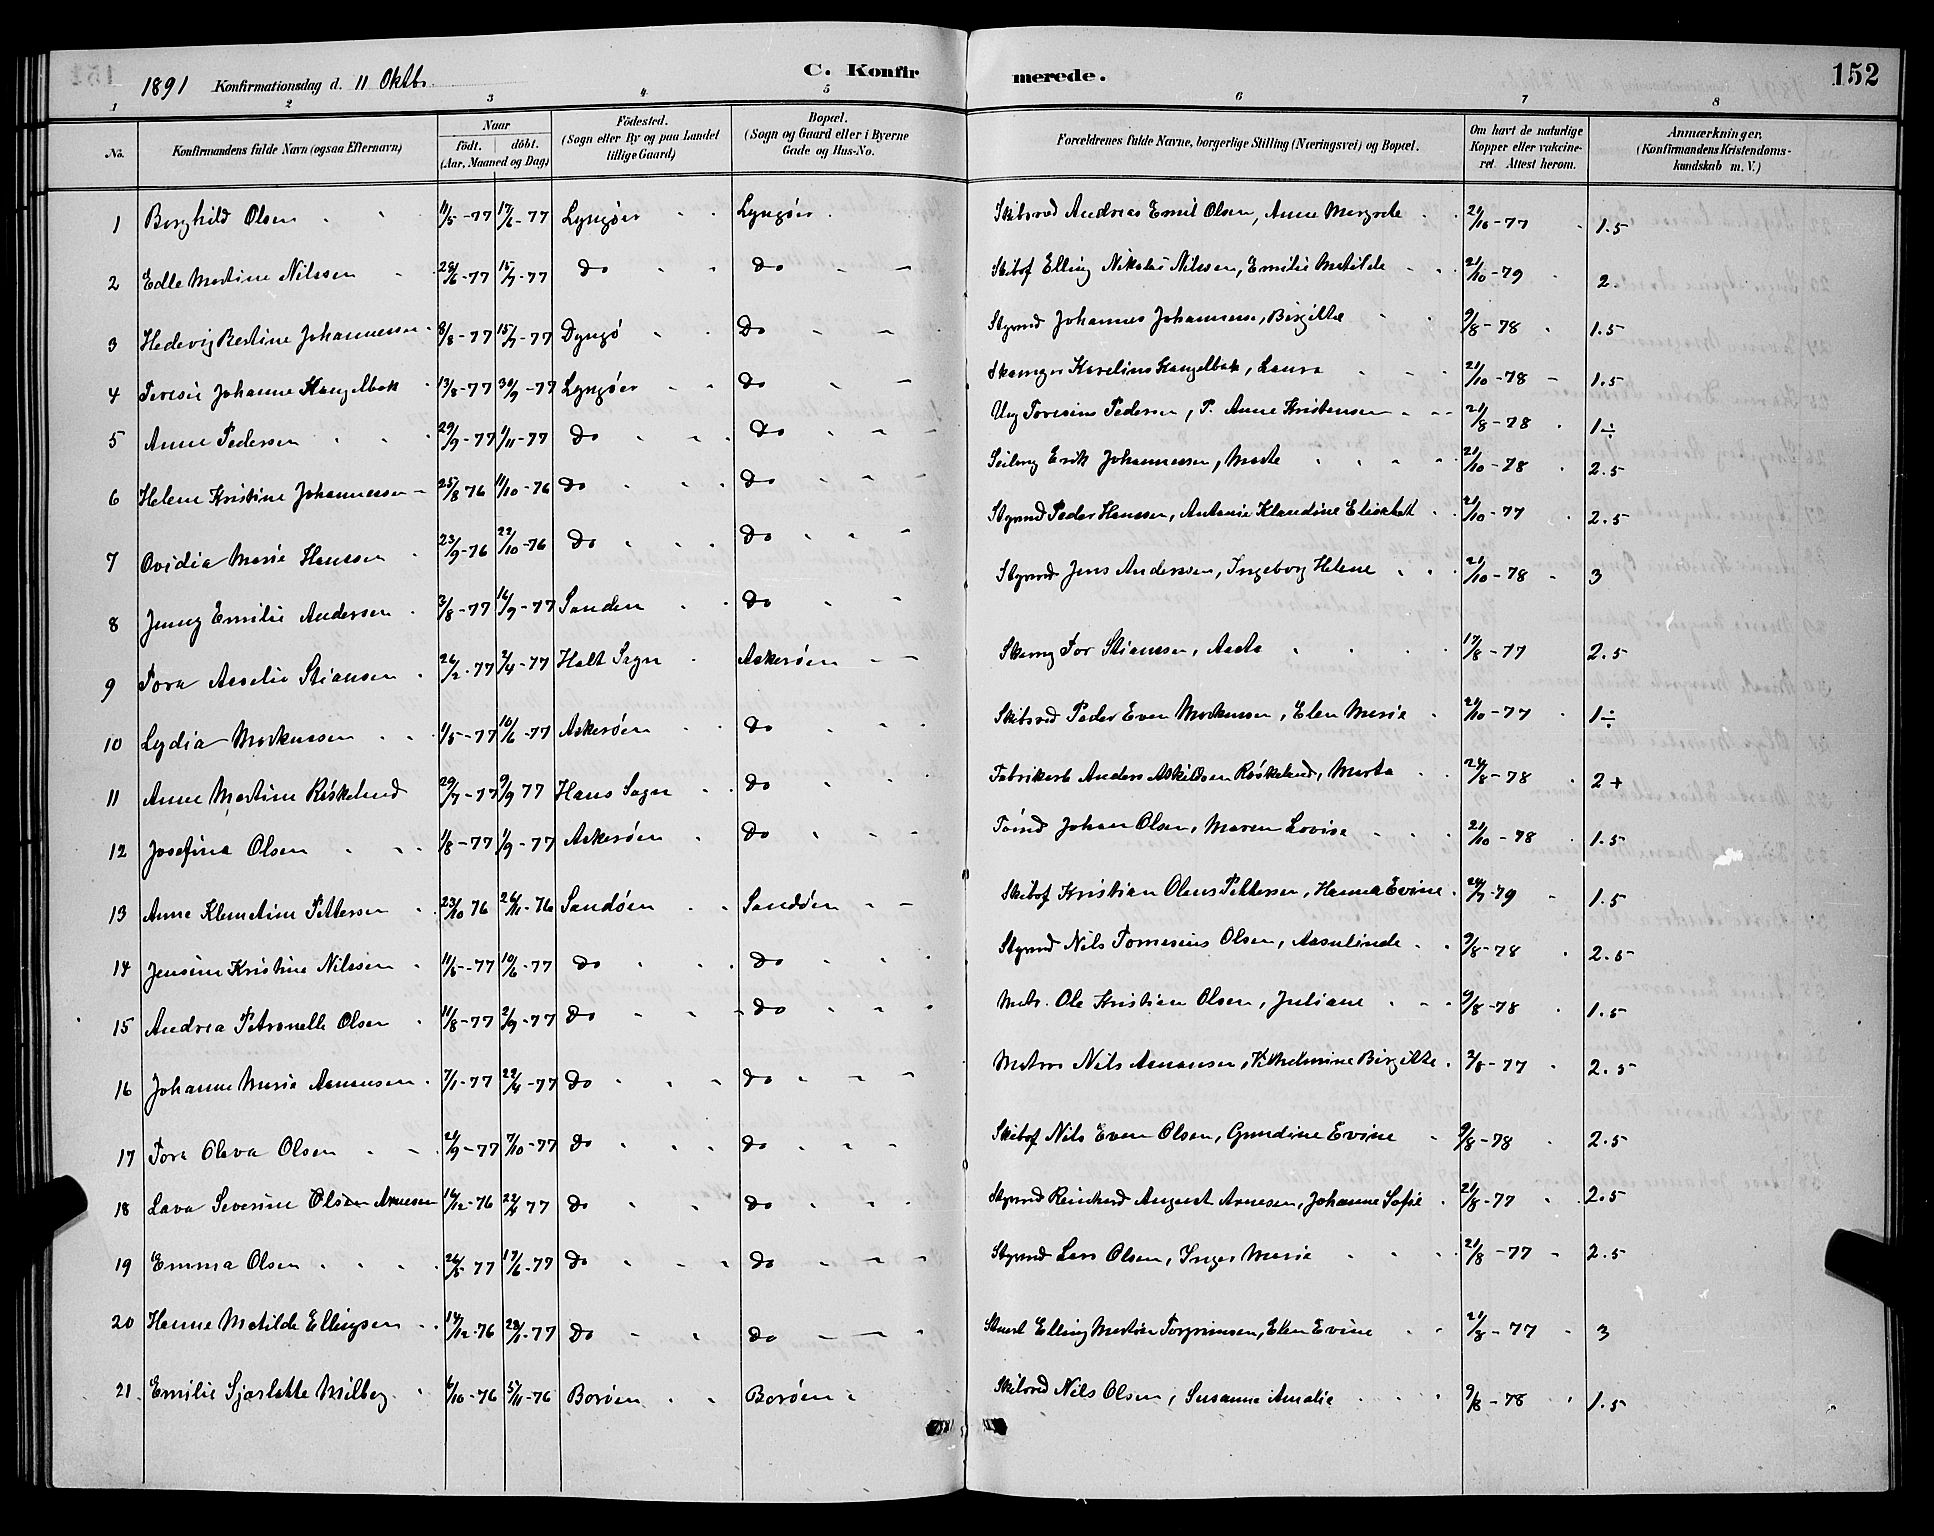 1891 Konfirmationsdag d. 11 Oktb. C. Konfirmerede. 152
1 2 3 4 5 6 7 8
No. Konfirmandens fulde Navn (ogsaa Efternavn) Naar födt. döbt. (Aar, Maaned og Dag) Födested. (Sogn eller By og paa Landet tillige Gaard) Bopæl. (Sogn og Gaard eller i Byerne Gade og Hus-No. Forældrenes fulde Navne, borgerlige Stilling (Næringsvei) og Bopæl. Om havt de naturlige Kopper eller vakcineret. Attest herom. Anmærkninger, (Konfirmandens Kristendomskundskab m. V.)
1 Borghild Olsen 11/5-77 17/6-77 Lyngöer Lyngöer Skibsred Andreas Emil Olsen, Anne Margrete 21/10-77 1.5
2 Edle Martine Nilssen 15/7-77 Do Do Skibsf Elling Nikolai Nilssen, Emilie Matilde 21/10-79 2.
3 Hedevig Bertine Johannessen 8/8-77 15/7-77 Dyngö Do Styrmd Johannes Johannesen, Birgitte 9/8-78 1.5
4 Teresie Johanne Kangelbak 13/8-77 30/9-77 Lyngöer Do Karelius Kangelbak, Laura 21/10-78 1.5
5 Anne Pedersen 29/9-77 1/11-77 Do Do Ung Toresius Pedersen, P. Anne Kristensen 21/8-78 1÷
6 Helene Kristine Johannessen 25/8 76 11/10-76 Do Do Erik Johannessen, Marte 21/10-78 2.5
7 Ovidia Marie Hanssen 23/9-76 22/10-76 Do Do Styrmd Peder Hanssen, Antonie Klaudine Elisabet 21/10-77 2.5
8 Jenny Emilie Andersen 2/8-77 16/9-77 Sanden Do Styrmd Jens Andersen, Ingeborg Helene 21/10-78 3
9 Tora Aselie Stiansen 26/2-77 2/4-77 Holt Sogn Askeröen Tor Stiansen, Aasta 17/8-77 2.5
10 Lydia Markussen 1/5-77 10/6-77 Askeröen Do Skibsred Peder Even Markussen, Elen Marie 21/10-77 1÷
11 Anne Martine Röskelund 29/7-77 9/9 77 Hans Sogn Do Fabrikarb Anders Askildsen Röskelund, Marta 24/8-78 2+
12 Josefina Olsen 1/8-77 1/9-77 Askeröen Do Tömd Johan Olsen, Maren Lovise 21/10-78 1.5
13 Anne Klemetine Pettersen 23/10 76 26/11-76 Sandöen Sandöen Skibsf Kristian Olaus Pettersen, Hanna Evine 24/7-79 1.5
14 Jensine Kristine Nilssen 11/5-77 10/6-77 Do Do Styrmd Nils Tomesius Olsen, Aasulinde 9/8-78 2.5
15 Andrea Petronelle Olsen 11/8-77 2/9-77 Do Do Matr. Ole Kristian Olsen, Juliane 9/8-78 1.5
16 Johanne Marie Asmansen 7/1-77 22/4-77 Do Do Matros Nils Asmansen, Vilhelmine Birgitte 2/8-77 2.5
17 Tora Oleva Olsen 21/9-77 7/10-77 Do Do Skibsf Nils Even Olsen, Gundine Evine 9/8-78 2.5
18 Lava Severine Olsen Arnesen 16/12-76 22/4 77 Do Do Styrmd Reinhard August Arnesen, Johanne Sofie 21/8-77 2.5
19 Emma Olsen 26/5 77 17/6-77 Do Do Styrmd Lars Olsen, Inger Marie 21/8-77 2.5
20 Hanne Matilde Ellingsen 14/12-76 -77 Do Do Elling Martin Torgrimsen, Elen Evine 21/8-77 3
21 Emilie Sjarlotte Milberg 6/10-76 5/11-76 Boröen Boröen Skibsred Nils Olsen, Susanne Amalie 9/8-78 1.5